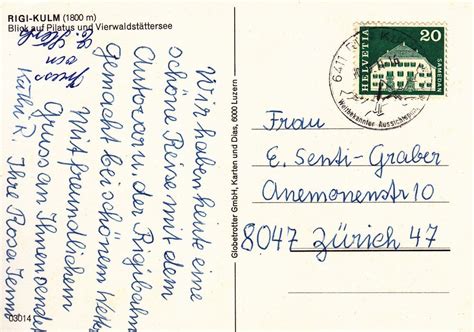 RIGI-KULM (1800 m)
Blick auf Pilatus und Vierwaldstättersee
Wir haben heute eine
schöne Reise mit dem
Autocar u. der Rigibahn
Gemacht bei schönem Wetter
Mit freundlichem
Gruss an Ihnen sendet
Ihre Rosa Jenni
Gruss
von
Käthi R.
03014
Globetrotter GmbH, Karten und Dias, 6000 Luzern
6411
Weltbekannter Aussichts
HELVETIA
20
SAMEDAN
Frau
E. Senti-Graber
Anemonenstr 10
8047 Zürich 47